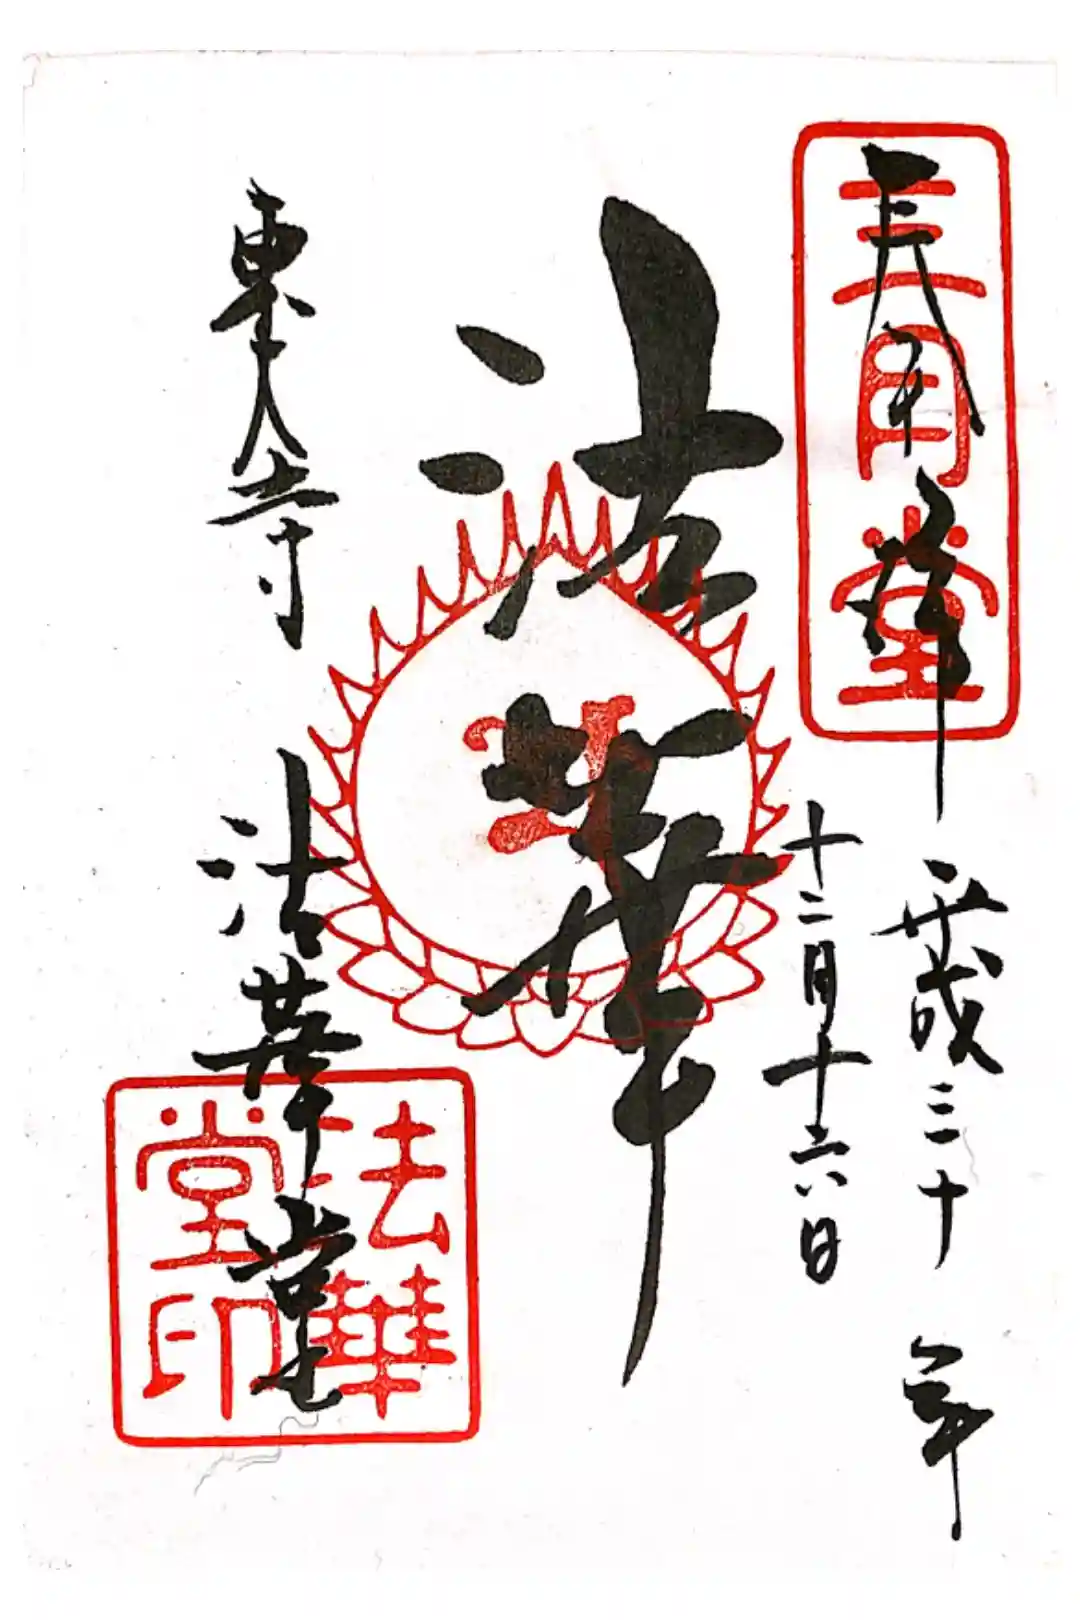 三月堂
奉拝
平成三十年
十二月十六日
法華
東大寺
法華堂
法華堂印